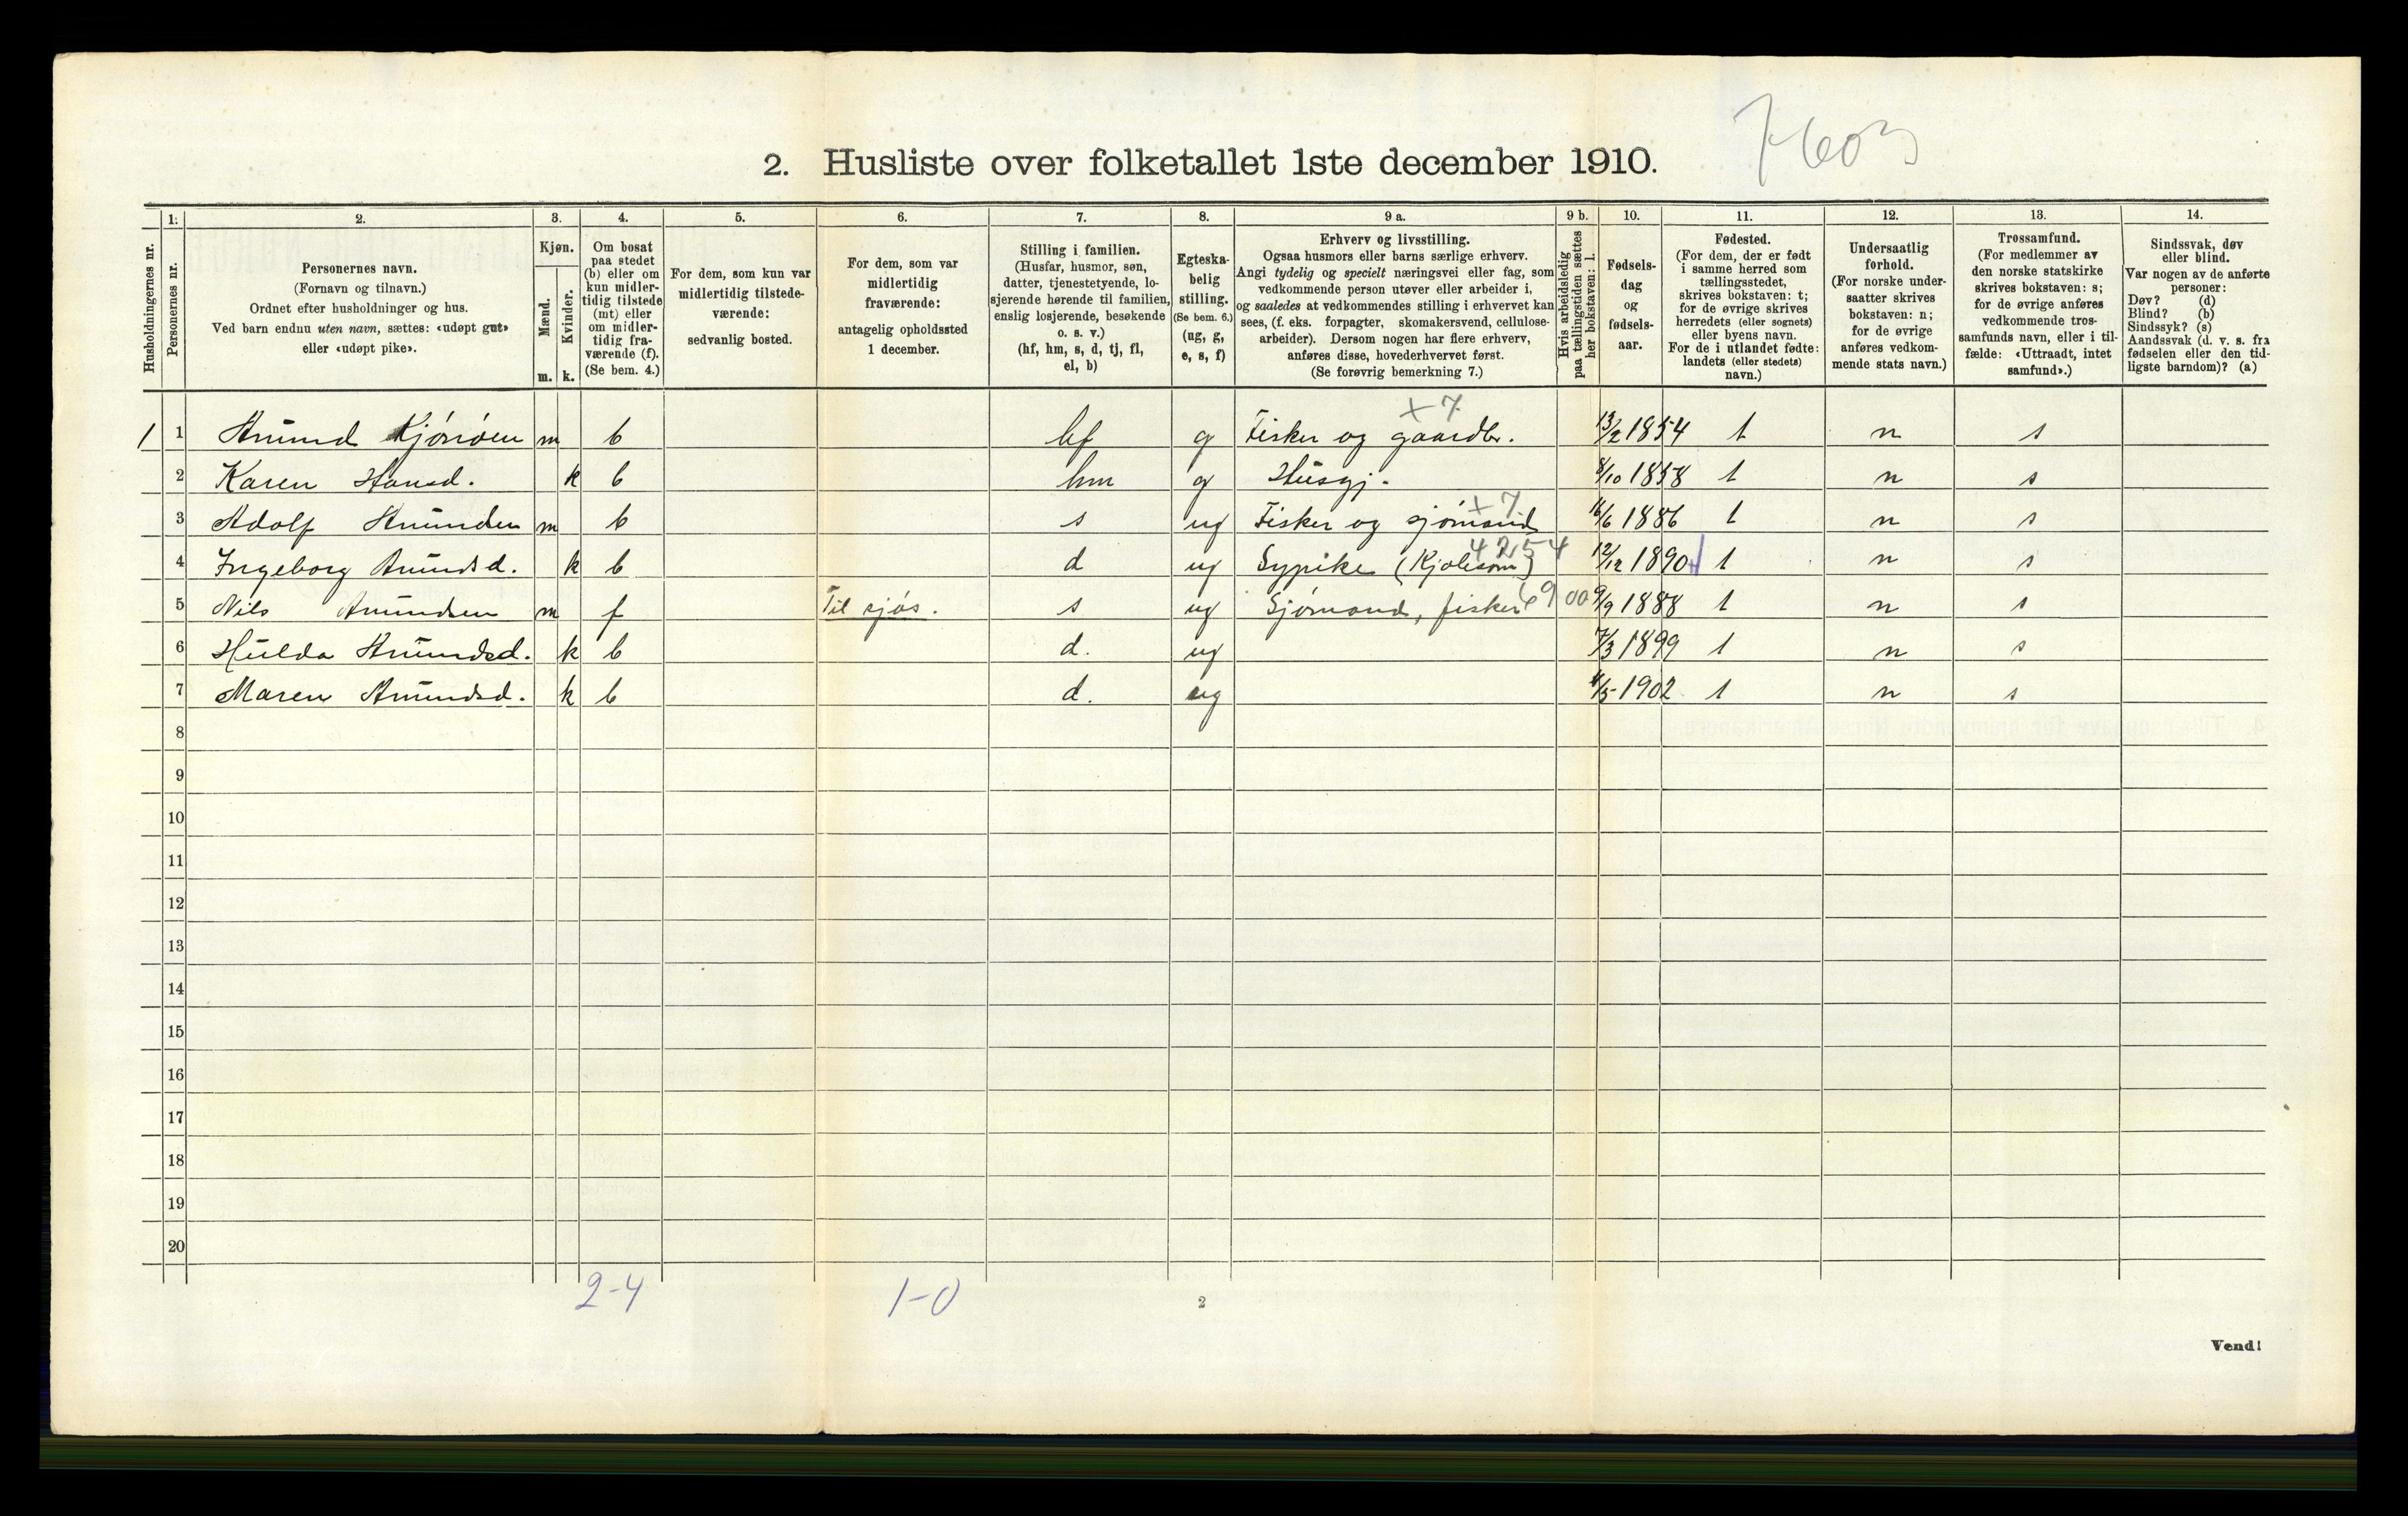 7603
2. Husliste over folketallet 1ste december 1910.
Husholdningernes nr.
1.
Personernes nr.
2.
Personernes navn.
(Fornavn og tilnavn.)
Ordnet efter husholdninger og hus.
Ved barn endnu uten navn, sættes: «udøpt gut»
eller «udøpt pike».
3.
Kjøn.
Mænd.
Kvinder.
m. k.
4.
Om bosat
paa stedet
(b) eller om
kun midler-
tidig tilstede
(mt) eller
om midler-
tidig fra-
værende (f).
(Se bem. 4.)
5.
For dem, som kun var
midlertidig tilstede-
værende:
sedvanlig bosted.
6.
For dem, som var
midlertidig
fraværende:
antagelig opholdssted
1 december.
7.
Stilling i familien.
(Husfar, husmor, søn,
datter, tjenestetyende, lo-
sjerende hørende til familien,
enslig losjerende, besøkende
o. s. v.)
(hf, hm, s, d, tj, fl,
el, b)
8.
Egteska-
belig
stilling.
(Se bem. 6.)
(ug, g,
e, s, f)
9 a.
Erhverv og livsstilling.
Ogsaa husmors eller barns særlige erhverv.
Angi tydelig og specielt næringsvei eller fag, som
vedkommende person utøver eller arbeider i,
og saaledes at vedkommendes stilling i erhvervet kan
sees, (f. eks. forpagter, skomakersvend, cellulose-
arbeider). Dersom nogen har flere erhverv,
anføres disse, hovederhvervet først.
(Se forøvrig bemerkning 7.)
9 b.
Hvis arbeidsledig
paa tællingstiden sættes
her bokstaven: l.
10.
Fødsels-
dag
og
fødsels-
aar.
11.
Fødested.
(For dem, der er født
i samme herred som
tællingsstedet,
skrives bokstaven: t;
for de øvrige skrives
herredets (eller sognets)
eller byens navn.
For de i utlandet fødte:
landets (eller stedets)
navn.)
12.
Undersaatlig
forhold.
(For norske under-
saatter skrives
bokstaven: n;
for de øvrige
anføres vedkom-
mende stats navn.)
13.
Trossamfund.
(For medlemmer av
den norske statskirke
skrives bokstaven: s;
for de øvrige anføres
vedkommende tros-
samfunds navn, eller i til-
fælde: «Uttraadt, intet
samfund».)
14.
Sindssvak, døv
eller blind.
Var nogen av de anførte
personer:
Døv? (d)
Blind? (b)
Sindssyk? (s)
Aandssvak (d. v. s. fra
fødselen eller den tid-
ligste barndom)? (a)
x 7
1 1 Amund Kjönöen m b hf g Fisker og gaardbr. 13/2 1854 t n s
2 Karen Hansd. k b hm g Husgj. 8/10 1858 t n s
x 7
3 Adolf Amunden m b s ug Fisker og sjömand 16/6 1886 t n s
4254
4 Ingeborg Amundsd. k b d ug Sypike (Kjolesöm) 12/12 1890 t n s
5 Nils Amundsen m f Til sjøs. s ug Sjömand, fisker 6900 9/9 1888 t n s
6 Hulda Amundsd. k b d. ug 7/3 1899 t n s
7 Maren Amundsd. k b d. ug 4/5 1902 t n s
8
9
10
11
12
13
14
15
16
17
18
19
20
2-4 1-0
2
Vend!